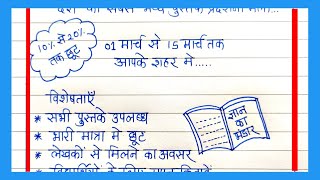 देश की सबसे भव्य पुस्तक प्रदर्शनी
10% से 20%
तक छूट
01 मार्च से 15 मार्च तक
आपके शहर मे.....
विशेषताएँ
* सभी पुस्तके उपलब्ध
* भारी मात्रा मे छूट
* लेखकों से मिलने का अवसर
ज्ञान
का
भंडार